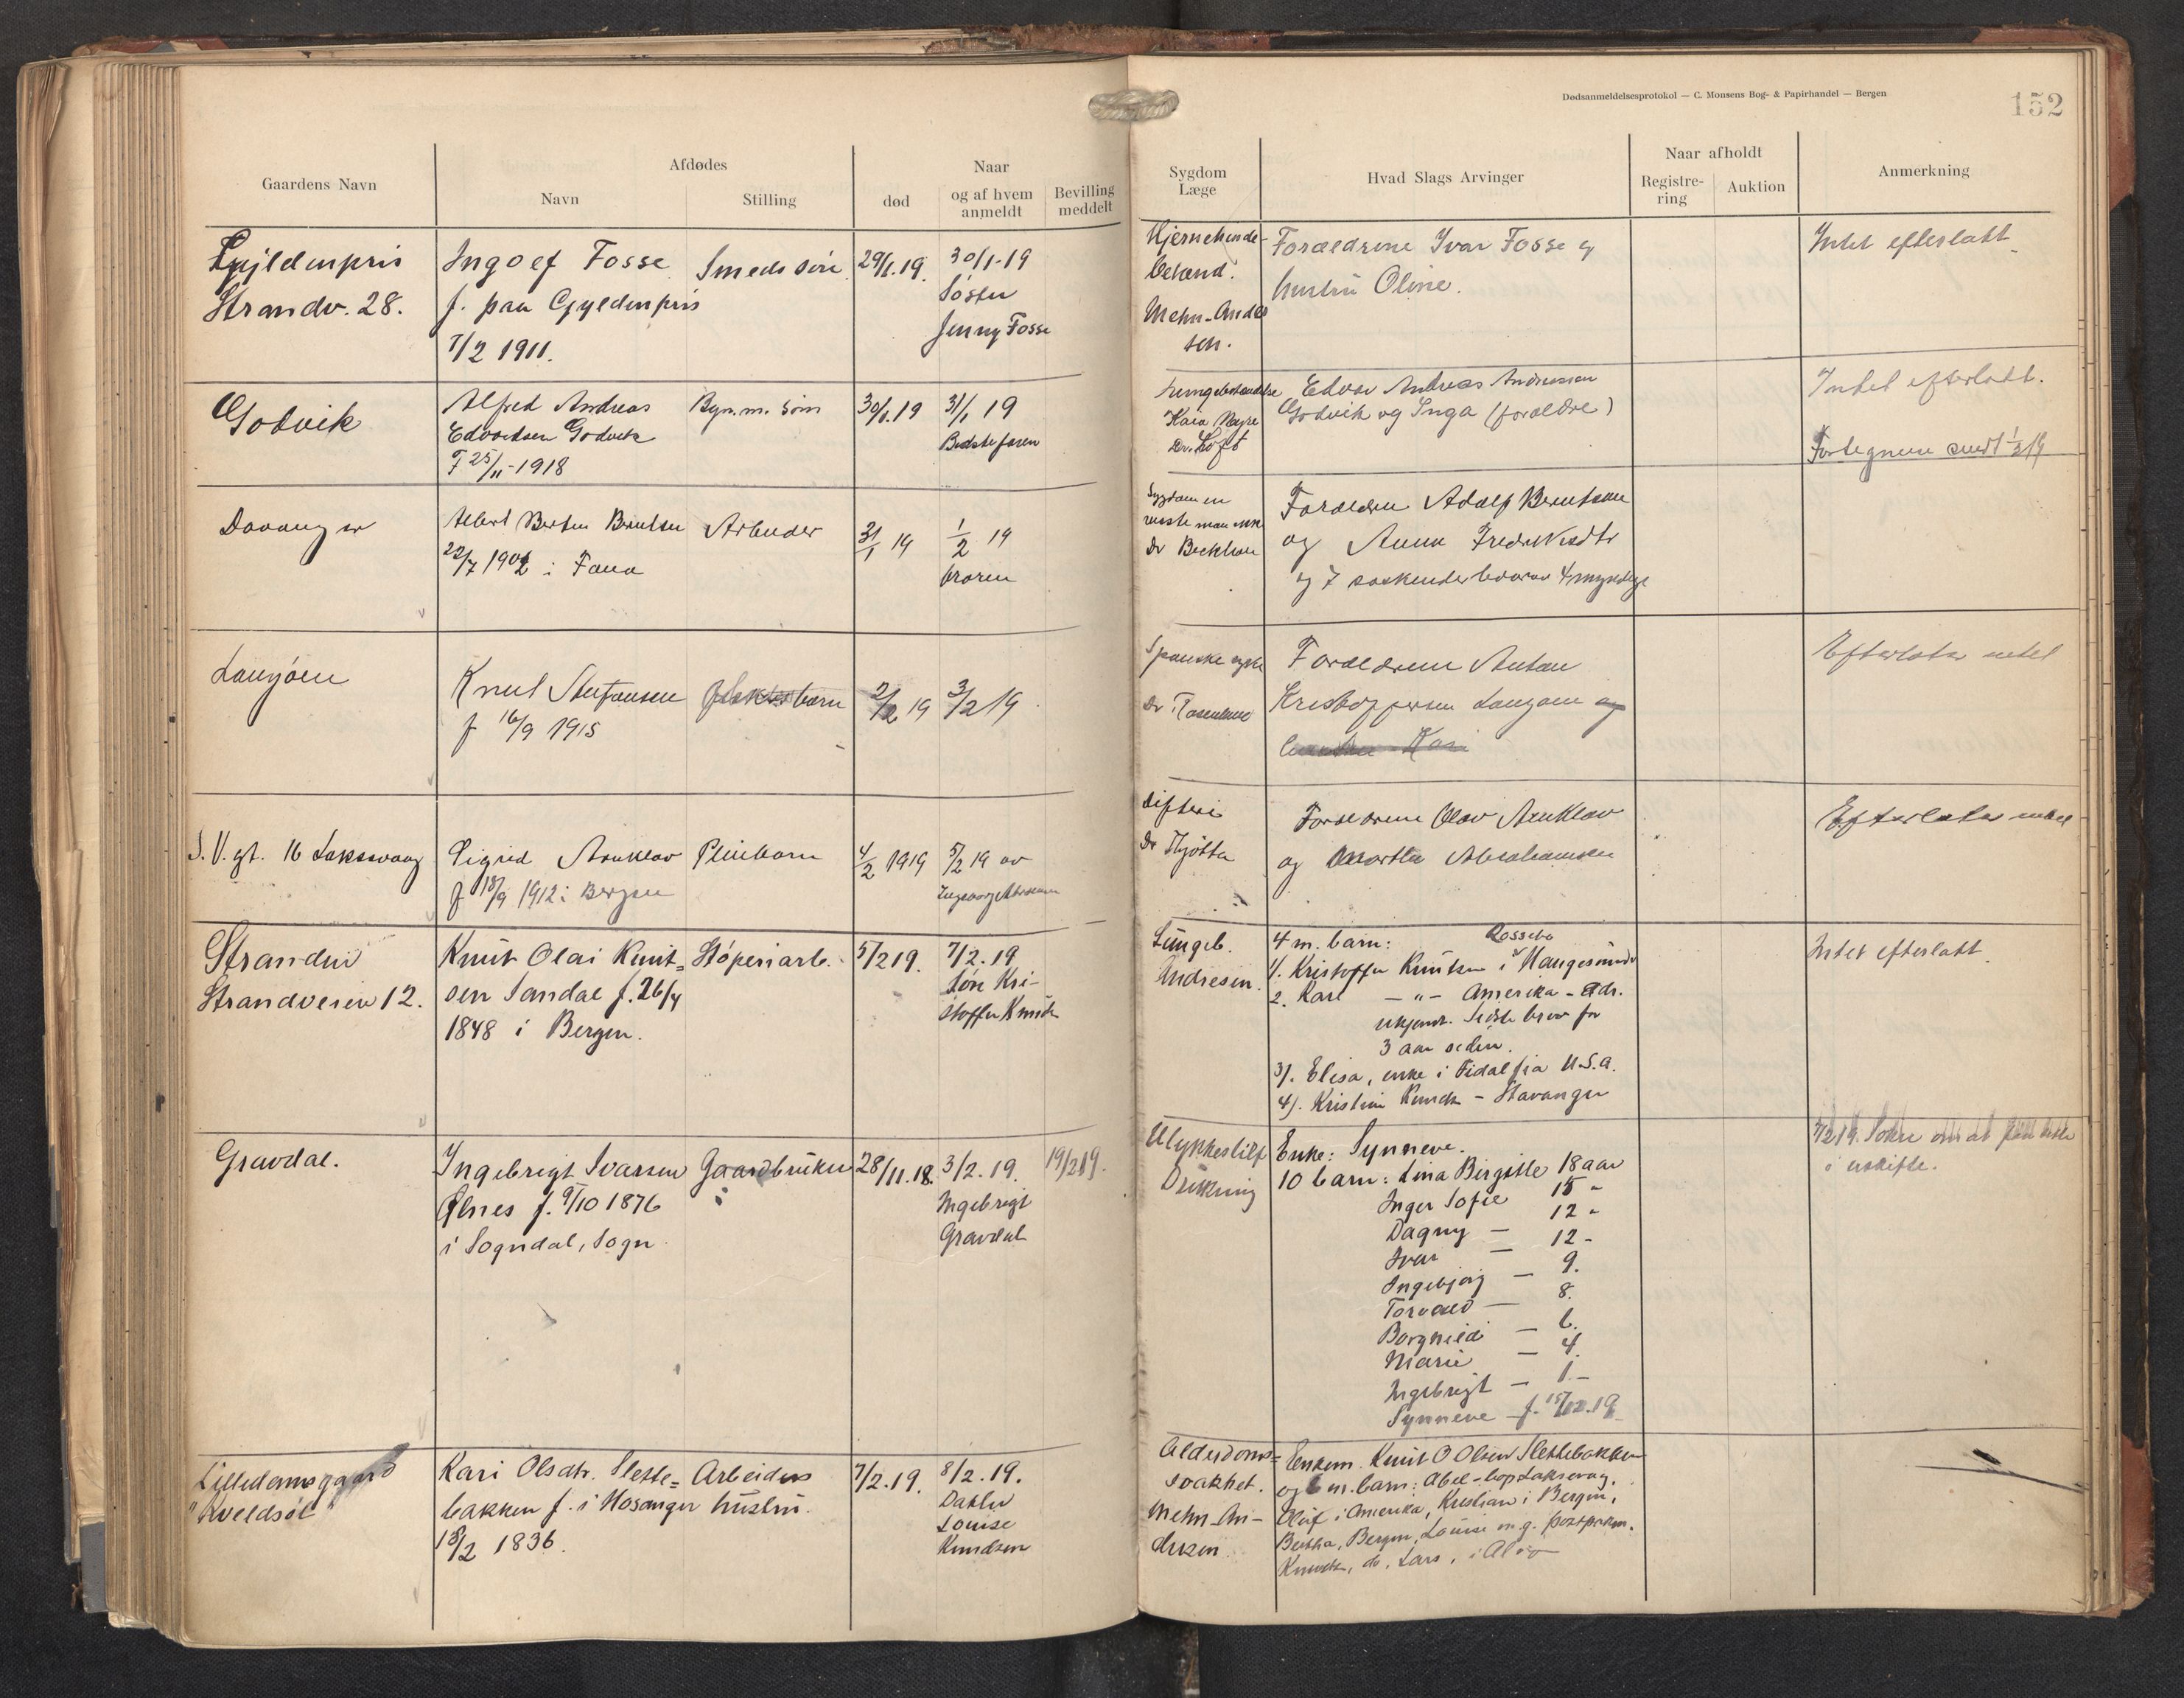 Dødsanmeldelsesprotokol — C. Monsens Bog- & Papirhandel — Bergen
152
Gaardens Navn
Afdødes
Navn
Stilling
død
Naar
og af hvem
anmeldt
Bevilling
meddelt
Sygdom
Læge
Hvad Slags Arvinger
Naar afholdt
Registre-
ring
Auktion
Anmerkning
Gyldenpris
Strandv. 28.
Ingolf Fosse
f. paa Gyldenpris
7/2 1911.
Smeds søn
29/1.19.
30/1-19
Søster
Jenny Fosse
Hjernehinde-
betænd.
Mehn-Ander
sen.
Forældrene Ivar Fosse og
hustru Oline.
Intet efterlatt
Godvik
Alfred Andreas
Edvardsen Godvik
F 25/11-1918
søn
30/1.19
31/1 19
Bedstefaren
Dr. Loft
Edvar Andreas Andreassen
Godvik og Inga (forældre)
Intet efterlatt.
Albert Berntsen
22/7 1902 i Fana
Arbeider
31/1 19
1/2 19
broren
Sygdommen
visste man ikke
Dr
Forældre Adolf Berntsen
og Anna Fredriksdtr
og 7 søskende hvorav 4 myndige
Knut Stefansen
f 16/9 1915
barn
2/2 19
3/2 19
Spanske syke
Dr
Forældrene Anton
Kristoffersen og
Efterlater intet
S.V. gt. 16 Laksevaag
Sigrid
f 18/9 1912 i Bergen
Pleiebarn
4/2 1919
5/2 19 av
Difteri
Dr
Forældrene Olav
og Martha Abrahamsen
Efterlater intet
Stranden
Strandveien 12.
Knut Olai Knut=
sen Sandal f. 26/4
1848 i Bergen.
Støperiarb.
5/2 19.
7/2.19
Søn Kri-
stoffer Knuds.
Lungeb.
Andresen.
4 m. barn:
Rossebø
1. Kristoffer Knutsen i Haugesund
2. Karl — " — Amerika - adr.
ukjendt. Sidste brev for
3 aar siden.
3). Elisa, enke i Fidalfia U.S.A.
4). Kristine Knuds. - Stavanger
Intet efterlatt.
Gravdal.
Ingebrigt Ivarsen
Ølnes f. 9/10 1876
i Sogndal, Sogn
Gaardbruker
28/11.18.
3/2. 19.
Ingebrigt
Gravdal
19/2 19.
Ulykkestilf
Drukning
Enke: Synneve.
10 barn: Lina Birgitte 18 aar
Inger Sofie 15 "
Dagny — 12 "
Ivar — 12 -
Ingebjørg — 9.
Torvald — 8.
Borghild — 6.
Marie — 4.
Ingebrigt — 1 -
Synneve — f. 15/12.19
i uskifte.
Lilledamsgaard
"Kveldsol"
Kari Olsdtr. Slette=
bakken f. i Hosanger
18/2 1836.
Arbeiders
hustru.
7/2.19.
8/2.19.
Datter
Louise
Knudsen
Alderdoms=
svakhet.
Mehn-An-
dresen.
Enkem. Knut O Olsen Slettebakken
og 6 m. barn: Abel - Laksevaag.
Oluf i Amerika, Kristian i Bergen,
Bertha, Bergen, Louise m.g.
Knuds., do, Lars, i